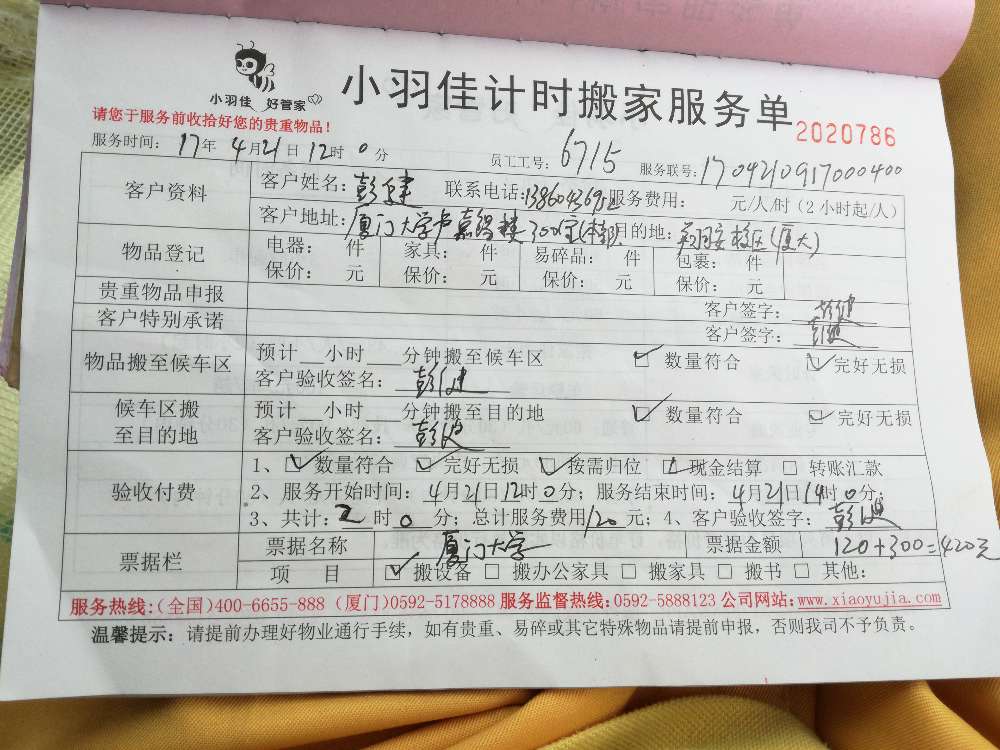 小羽佳 好管家
小羽佳计时搬家服务单
2020786
请您于服务前收拾好您的贵重物品！
服务时间：17年4月21日12时0分 员工工号：6715 服务联号：1704210917000400
客户资料
客户姓名：彭健 联系电话： 服务费用： 元/人/时（2小时起/人）
客户地址：厦门大学 嘉锡楼300室 目的地：翔安校区(厦大)
物品登记
电器： 件 家具： 件 易碎品： 件 包裹： 件
保价： 元 保价： 元 保价： 元 保价： 元
贵重物品申报 客户签字：彭健
客户特别承诺 客户签字：彭健
物品搬至候车区
预计__小时__分钟搬至候车区 ☑ 数量符合 ☑ 完好无损
客户验收签名：彭健
候车区搬至目的地
预计__小时__分钟搬至目的地 ☑ 数量符合 ☑ 完好无损
客户验收签名：彭健
验收付费
1、☑ 数量符合 ☑ 完好无损 ☑ 按需归位 ☑ 现金结算 □ 转账汇款
2、服务开始时间：4月21日12时0分；服务结束时间：4月21日14时0分；
3、共计：2时0分；总计服务费用120元；4、客户验收签字：彭健
票据栏
票据名称 厦门大学 票据金额 120+300=420元
项 目 ☑ 搬设备 □ 搬办公家具 □ 搬家具 □ 搬书 □ 其他：
服务热线：(全国)400-6655-888 (厦门)0592-5178888 服务监督热线：0592-5888123 公司网站：www.xiaoyujia.com
温馨提示：请提前办理好物业通行手续，如有贵重、易碎或其它特殊物品请提前申报，否则我司不予负责。